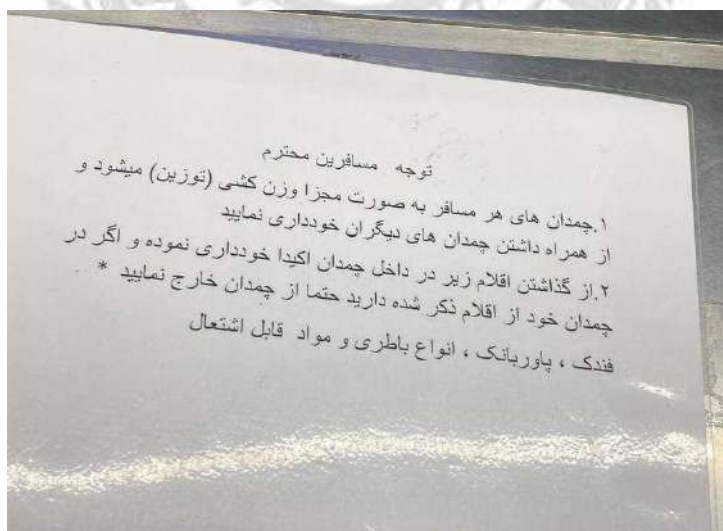 توجه مسافرین محترم
۱.چمدان های هر مسافر به صورت مجزا وزن کشی (توزین) میشود و
از همراه داشتن چمدان های دیگران خودداری نمایید
۲.از گذاشتن اقلام زیر در داخل چمدان اکیدا خودداری نموده و اگر در
چمدان خود از اقلام ذکر شده دارید حتما از چمدان خارج نمایید *
فندک ، پاوربانک ، انواع باطری و مواد قابل اشتعال